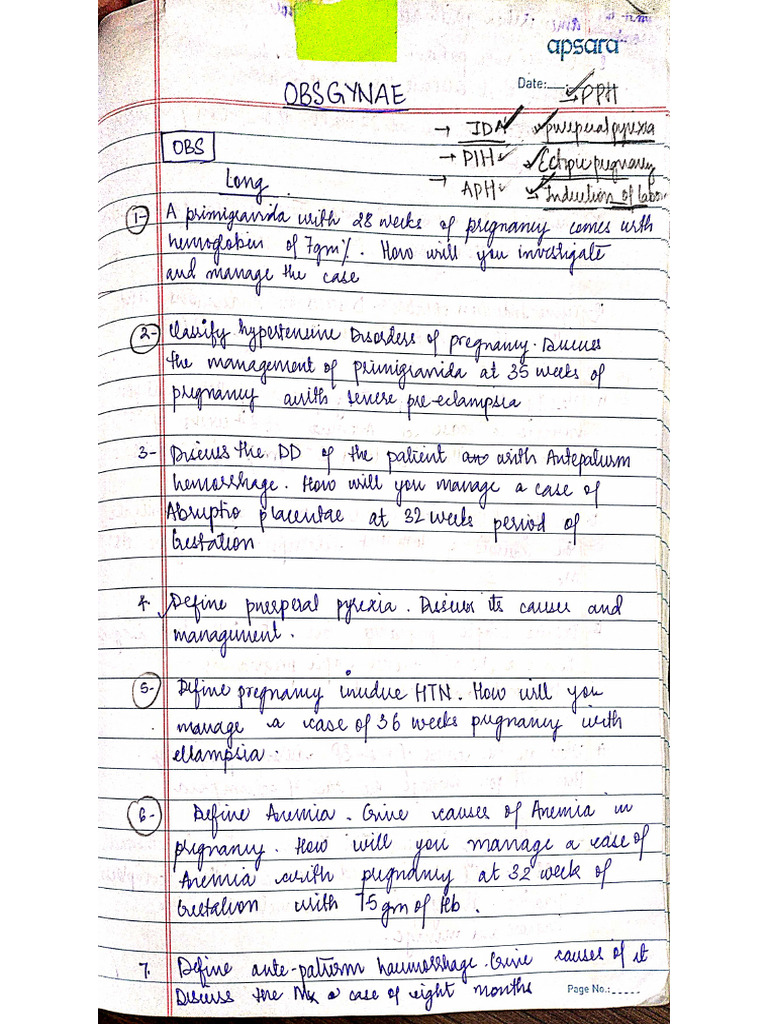 apsara
Date:
→ PPH
OBSGYNAE
→ IDA
puerperal pyrexia
OBS
→ PIH
Ectopic pregnancy
Long
→ APH
Induction of labo
1- A primigravida with 28 weeks of pregnancy comes with
hemoglobin of 7gm%. How will you investigate
and manage the case
2- Classify hypertensive Disorders of pregnancy. Discuss
the management of primigravida at 35 weeks of
pregnancy with severe pre-eclampsia
3- Discuss the DD of the patient with Antepatum
hemorrhage. How will you manage a case of
Abruptio placentae at 32 weeks period of
Gestation
4. Define puerperal pyrexia. Discuss its causes and
management.
5- Define pregnancy induce HTN. How will you
manage a case of 36 weeks pregnancy with
ellampsia.
6- Define Anemia. Give causes of Anemia in
pregnancy. How will you manage a case of
Anemia with pregnancy at 32 week of
Gestation with 75gm of Hb.
7. Define ante-pattum haemorrhage. Give causes of it
Discuss the Mx a case of eight months
Page No.: